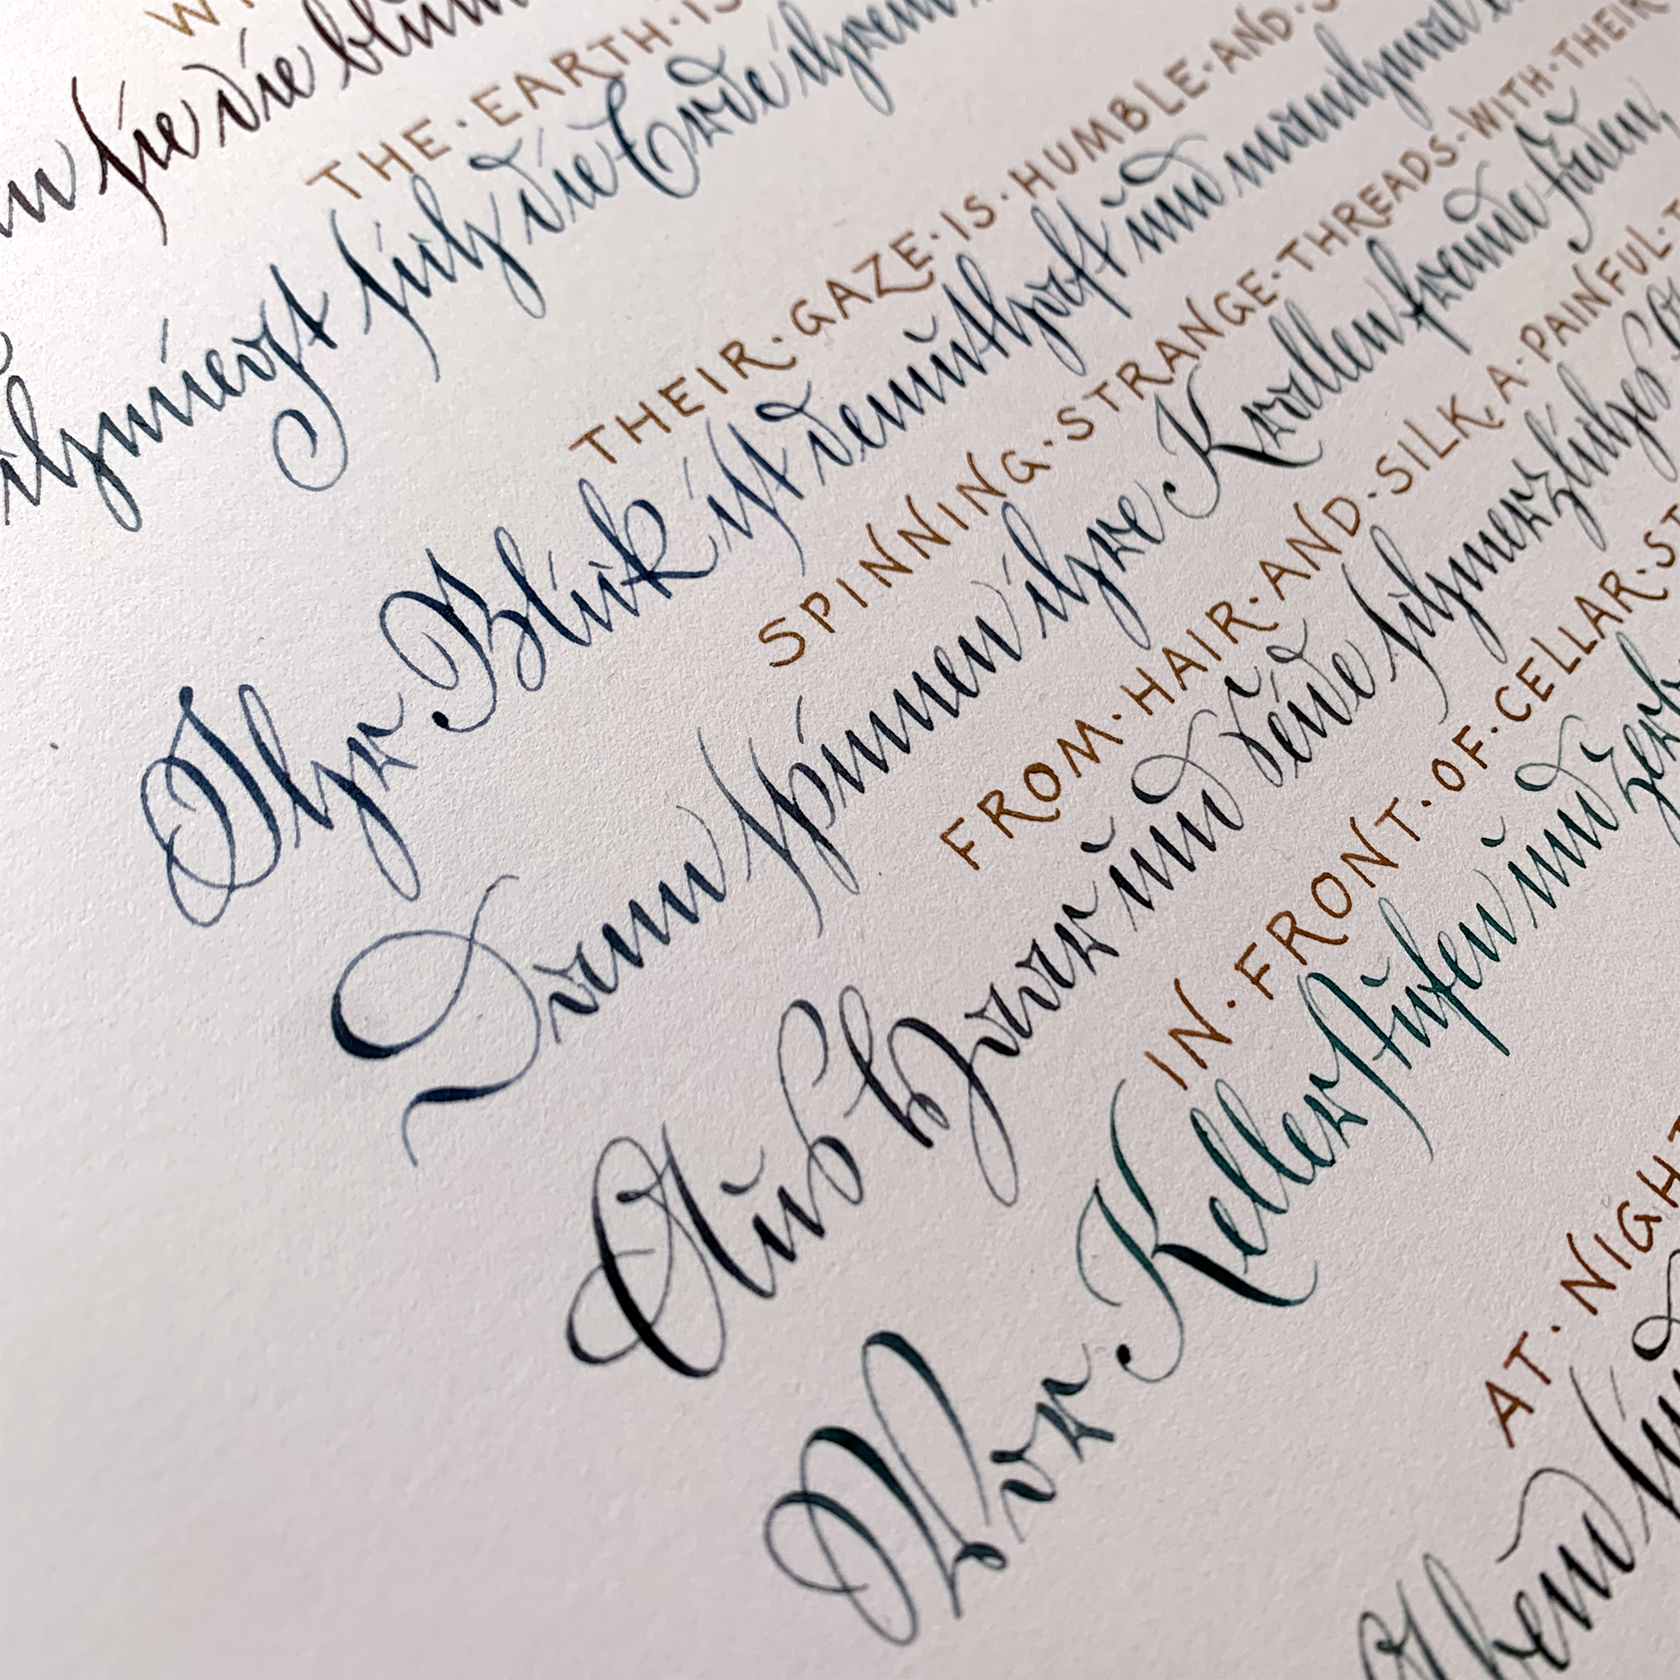 sie die
THE·EARTH·IS·
chmiegt sich die Erde ihrem
THEIR·GAZE·IS·HUMBLE·AND·S
Ihr Blick ist demuthaft und manchmal
SPINNING·STRANGE·THREADS·WITH·THEIR
Dann spinnen ihre Krallen fremde Fäden,
FROM·HAIR·AND·SILK, A·PAINFUL·
Aus Haar und Seide schmerzliches
IN·FRONT·OF·CELLAR·ST
Vor Kellerstufen und zerb
AT·NIGHT
Abend